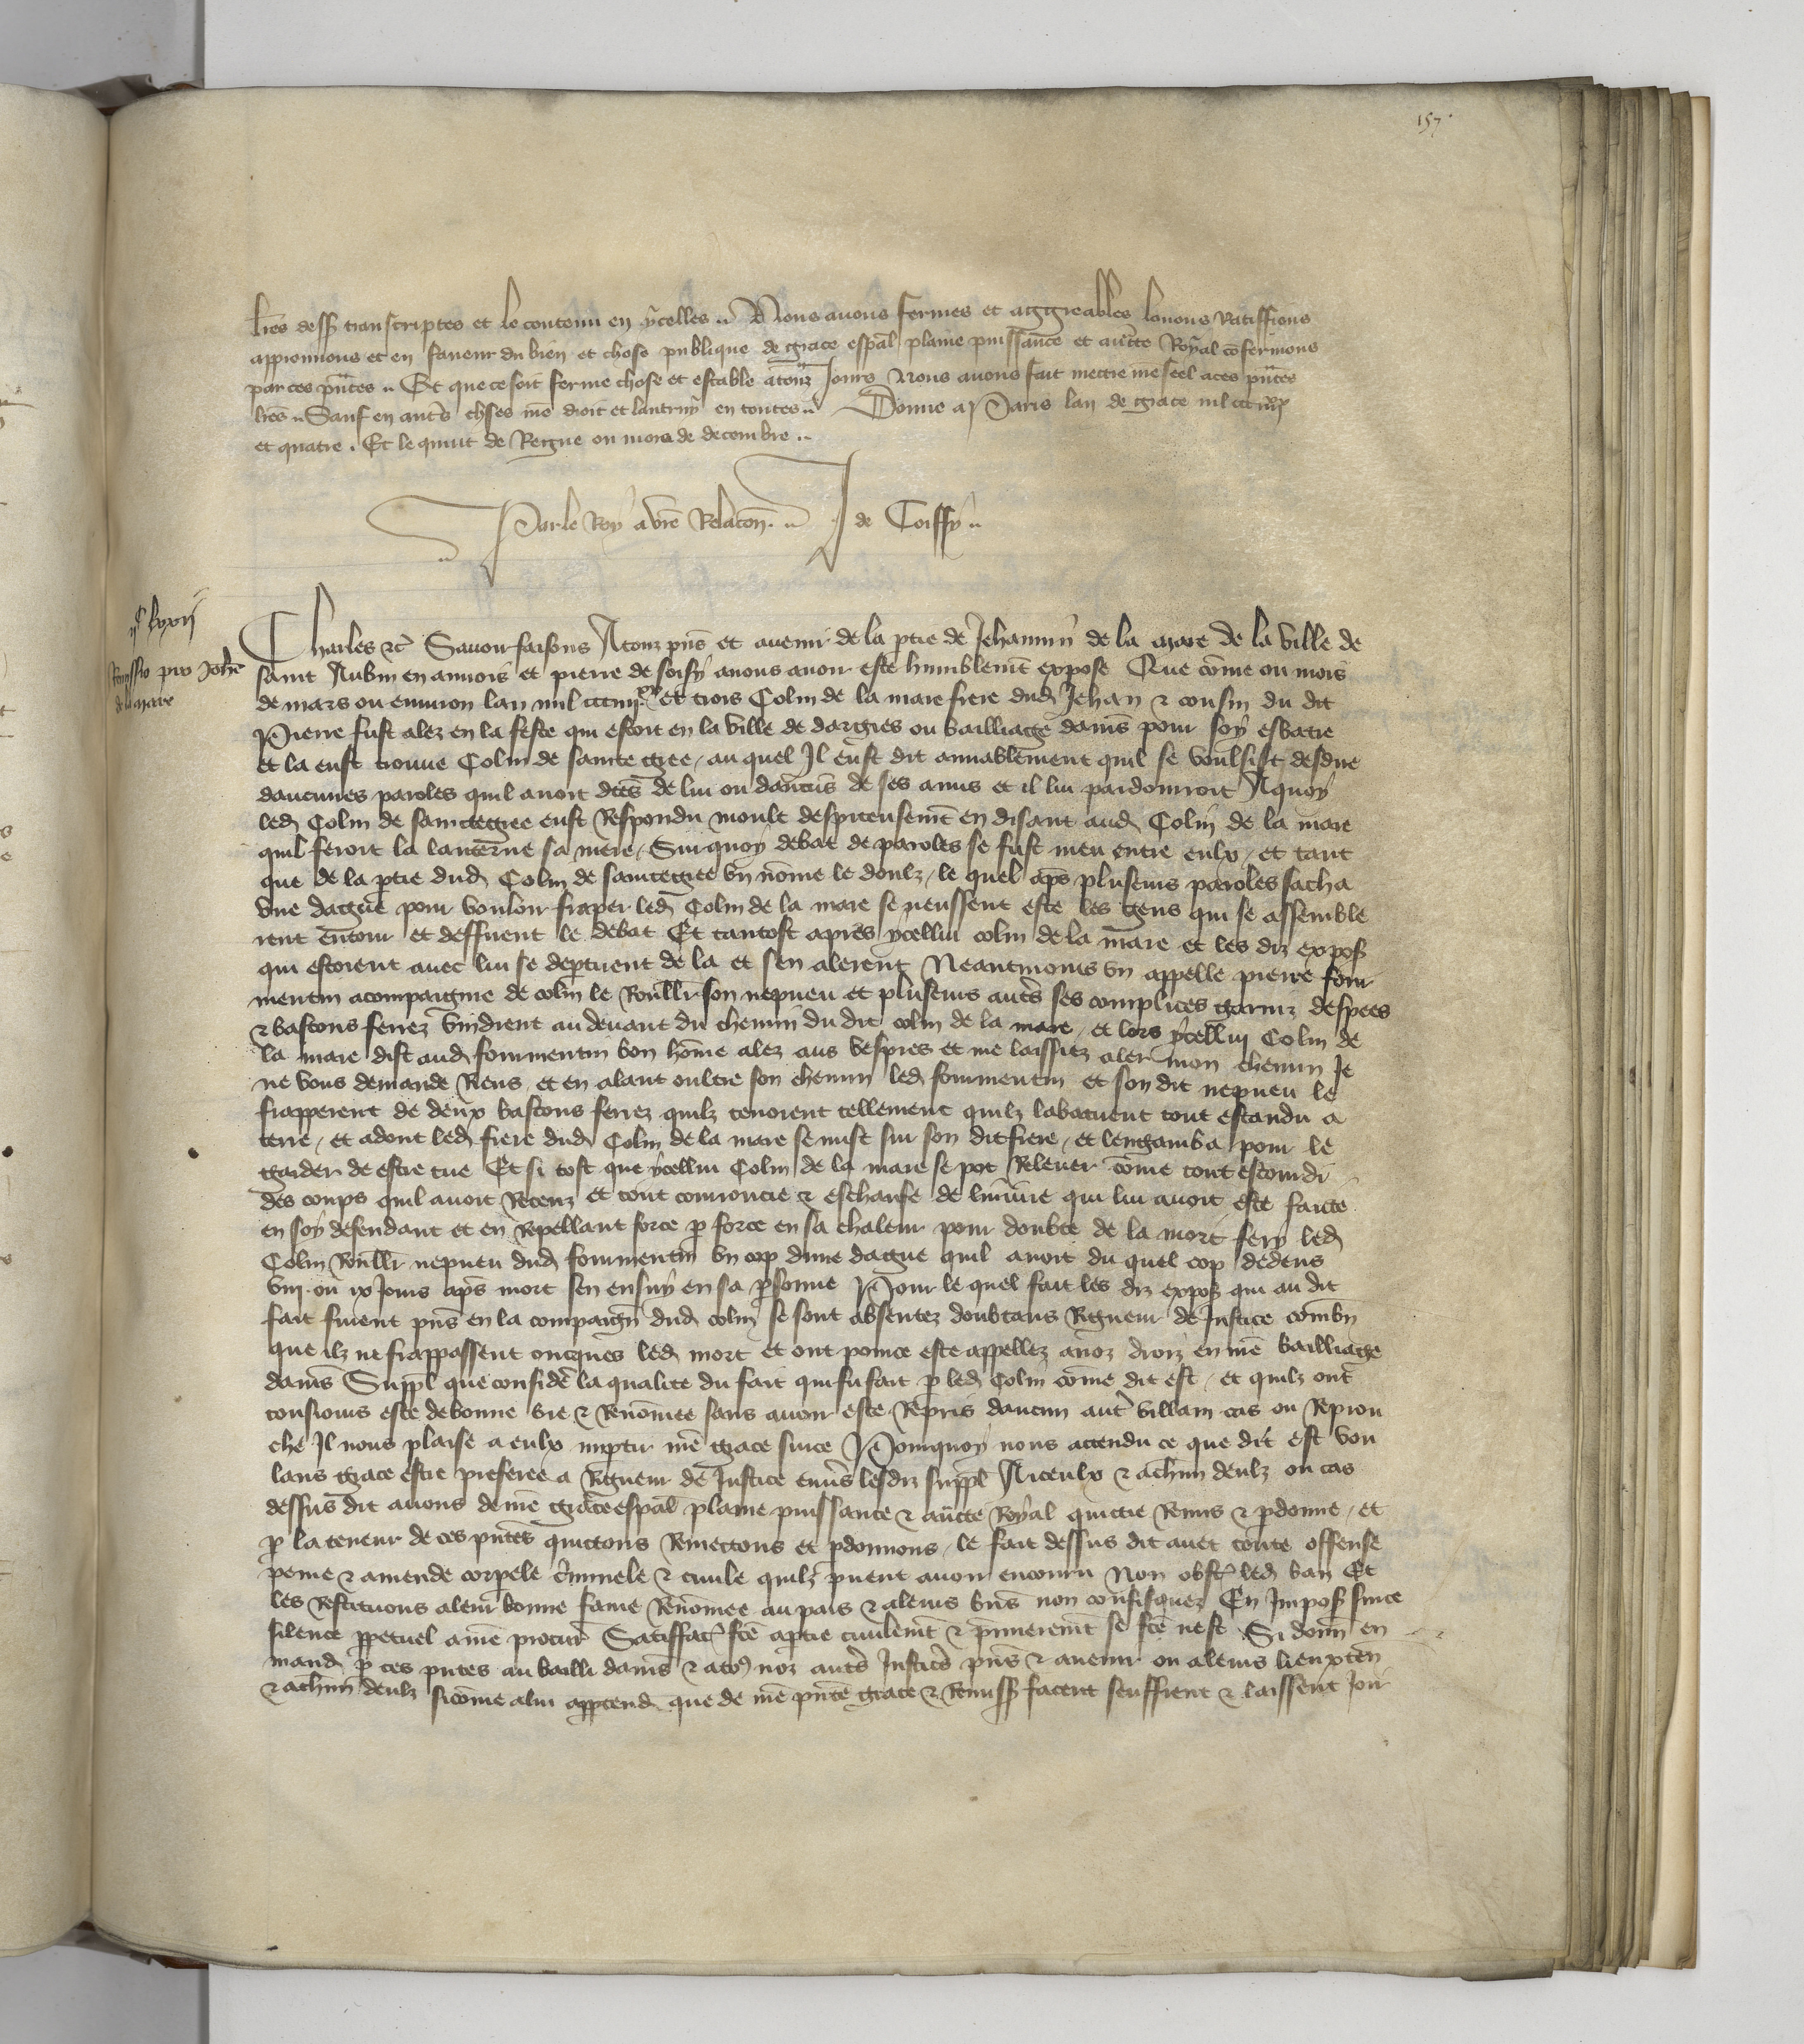 157
lres dessus transcriptes et le contenu en ycelles .. Nous avons fermes et aggreables louons Ratiffions
approuvons et en faveur du bien et chose publique de grace espal plaine puissance et aucte Royal confermons
par ces pntes .. Et que ce soit ferme chose et estable a touz Jours Nous avons fait mettre nre seel a ces pntes
lres .. Sauf en autres choses nre droit et lautruy en toutes .. Donne a Paris lan de grace mil ccc iiiixx
et quatre . Et le quint de Regne ou mois de decembre ..
Par le Roy a vre Relacon .. J de Coiffy ..
Remissio pro Johe
de la mare
Charles etc Savoir faisons A touz pns et avenir de la ptie de Jehannin de la mare de la ville de
saint Aubin en amiois et pierre de soisy avons avoir este humblemt expose Que come ou mois
de mars ou environ lan mil ccc iiiixx et trois Colin de la mare frere dud Jehan & cousin du dit
Pierre fust alez en la feste qui estoit en la ville de dargies ou bailliage damis pour soy esbatre
et la eust trouve Colin de saintegree / au quel Il eust dit amiablement quil se voulsist desdire
daucunes paroles quil avoit dces de lui ou daucuns de ses amis et il lui pardonroit A quoy
led Colin de saintegree eust Respondu moult despiteusemt en disant aud Colin de la mare
quil feroit la lanterne sa mere / Sur quoy debat de paroles se fust meu entre eulx / et tant
que de la ptie dud Colin de saintegree un nomme le doulz / le quel aps plusieurs paroles sacha
une dague pour vouloir fraper led Colin de la mare se neussent este les gens qui se assemble
rent entour et deffirent le debat Et tantost apres ycellui colin de la mare et les diz expos
qui estoient avec lui se deptirent de la et sen alerent Neantmoins un appelle pierre four
mentin acompaigne de colin le Roullr son nepveu et plusieurs autres ses complices garniz despees
& bastons ferrez vindrent au devant du chemin du dit colin de la mare / et lors ycellui Colin de
la mare dist aud fourmentin bon home alez aus vespres et me laissiez aler mon chemin Je
ne vous demande Riens / et en alant oultre son chemin led fourmentin et son dit nepveu le
frapperent de deux bastons ferrez quilz tenoient tellement quilz labatirent tout estandu a
terre / et adont led frere dud Colin de la mare se mist sur son dit frere / et lengamba pour le
garder de estre tue Et si tost que ycellui Colin de la mare se pot Relever come tout estourdi
des coups quil avoit Receuz et tout courroucie & eschaufe de linjure qui lui avoit este faicte
en soy defendant et en Repellant force p force en sa chaleur pour doubte de la mort fery led
Colin Roullr nepveu dud fourmentin un cop dune dague quil avoit du quel cop dedens
viii . ou ix Jours aps mort sen ensuy en sa psonne Pour le quel fait les diz expos qui au dit
fait furent pns en la compaign dud colin se sont absentez doubtans Rigueur de Justice combn
que ilz ne frappassent oncques led mort et ont pour ce este appellez a noz droiz en nre bailliage
damis Suppl que consider la qualite du fait qui fu fait p led Colin come dit est / et quilz ont
tousiours este de bonne vie & Renomee sans avoir este Repris daucun autre villain cas ou Reprou
che Il nous plaise a eulx imptir nre grace sur ce Pourquoy nous attendu ce que dit est vou
lans grace estre preferee a Rigueur de Justice envers lesdiz suppl A iceulx & a chun deulz ou cas
dessus dit avons de nre grace espal plaine puissance & aucte Royal quictie Remis & pdonne / et
p la teneur de ces pntes quictons Remectons et pdonnons / le fait dessus dit avec toute offense
peine & amende corporele criminele & civile quilz puent avoir encouru Non obst led ban Et
les Restituons a leur bonne fame Renomee au pais & a leurs biens non confisquez En Impos sur ce
silence ppetuel a nre procur Satiffac fce a ptie civilemt & pmieremt se fce nest Si donn en
mand p ces pntes au bailli damis & a toz noz autres Justices pns & avenir ou a leurs lieuxten
& a chun deulz sicome a lui apptend que de nre pnte grace & Remiss facent seuffrent & laissent Joir